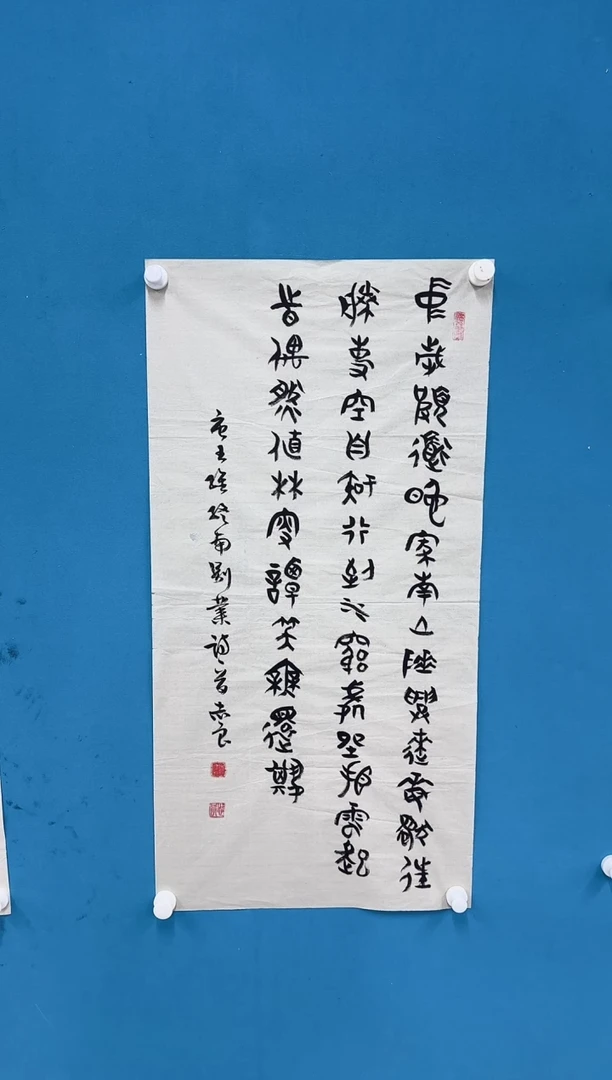 中歲頗道晚家南山陲興來每獨往
勝事空自知行到水窮處坐看雲起
時偶然值林叟譚笑無還期
唐王維終南別業詩曾志良